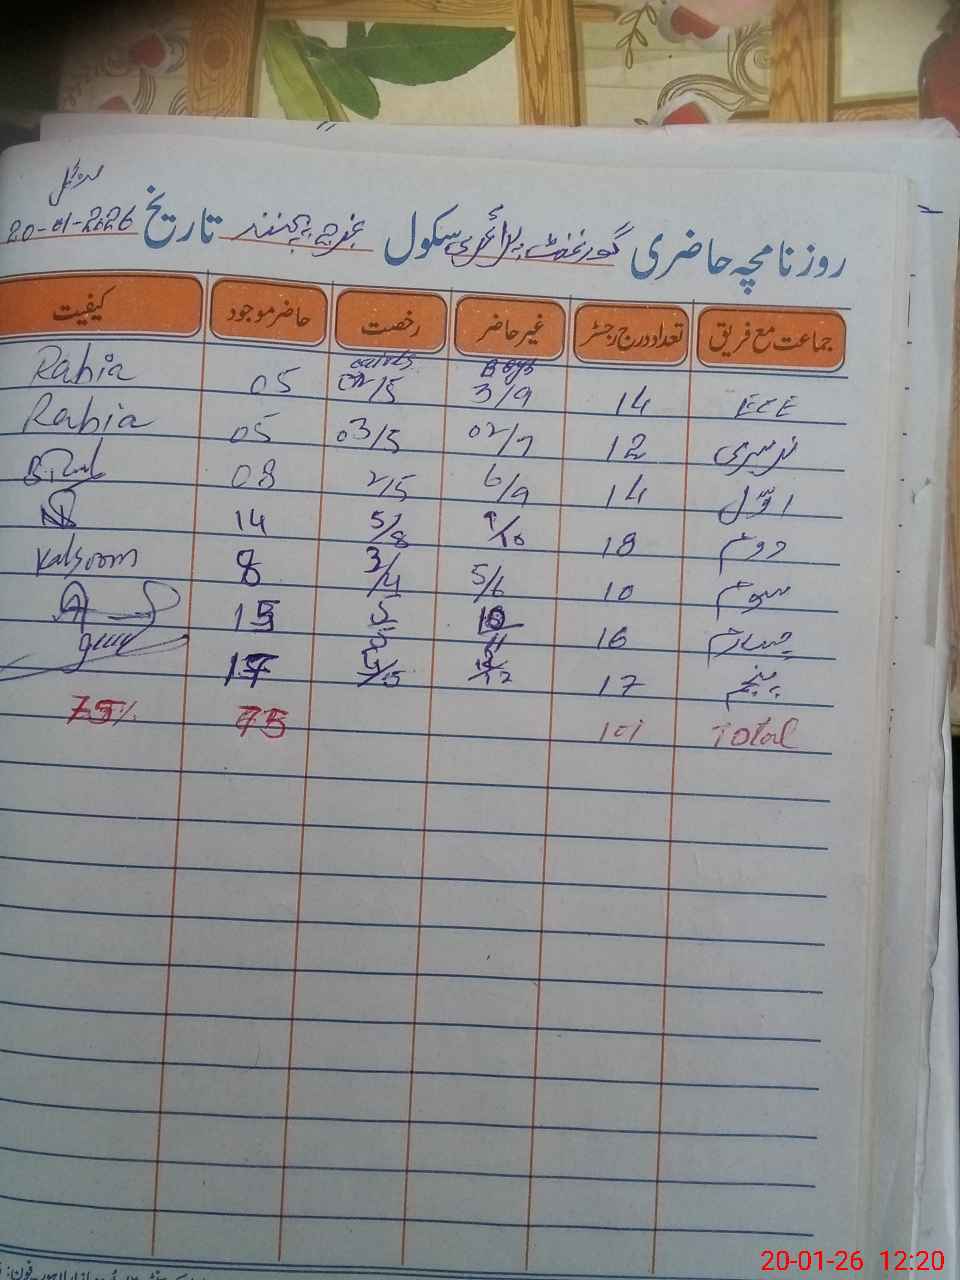 منگل
روزنامچہ حاضری گورنمنٹ پرائمری سکول تاریخ 20-01-2026
جماعت مع فریق تعداد درج رجسٹر غیر حاضر رخصت حاضر موجود کیفیت
Boys Girls
ECE 14 3/9 02/5 05 Rabia
نرسری 12 02/7 03/5 05 Rabia
اوّل 14 6/9 2/5 08
دوئم 18 9/10 5/8 14
سوئم 10 5/6 3/4 8 Kalsoom
چہارم 16 5/5 15
پنجم 17 17
Total 101 75 75%
20-01-26 12:20